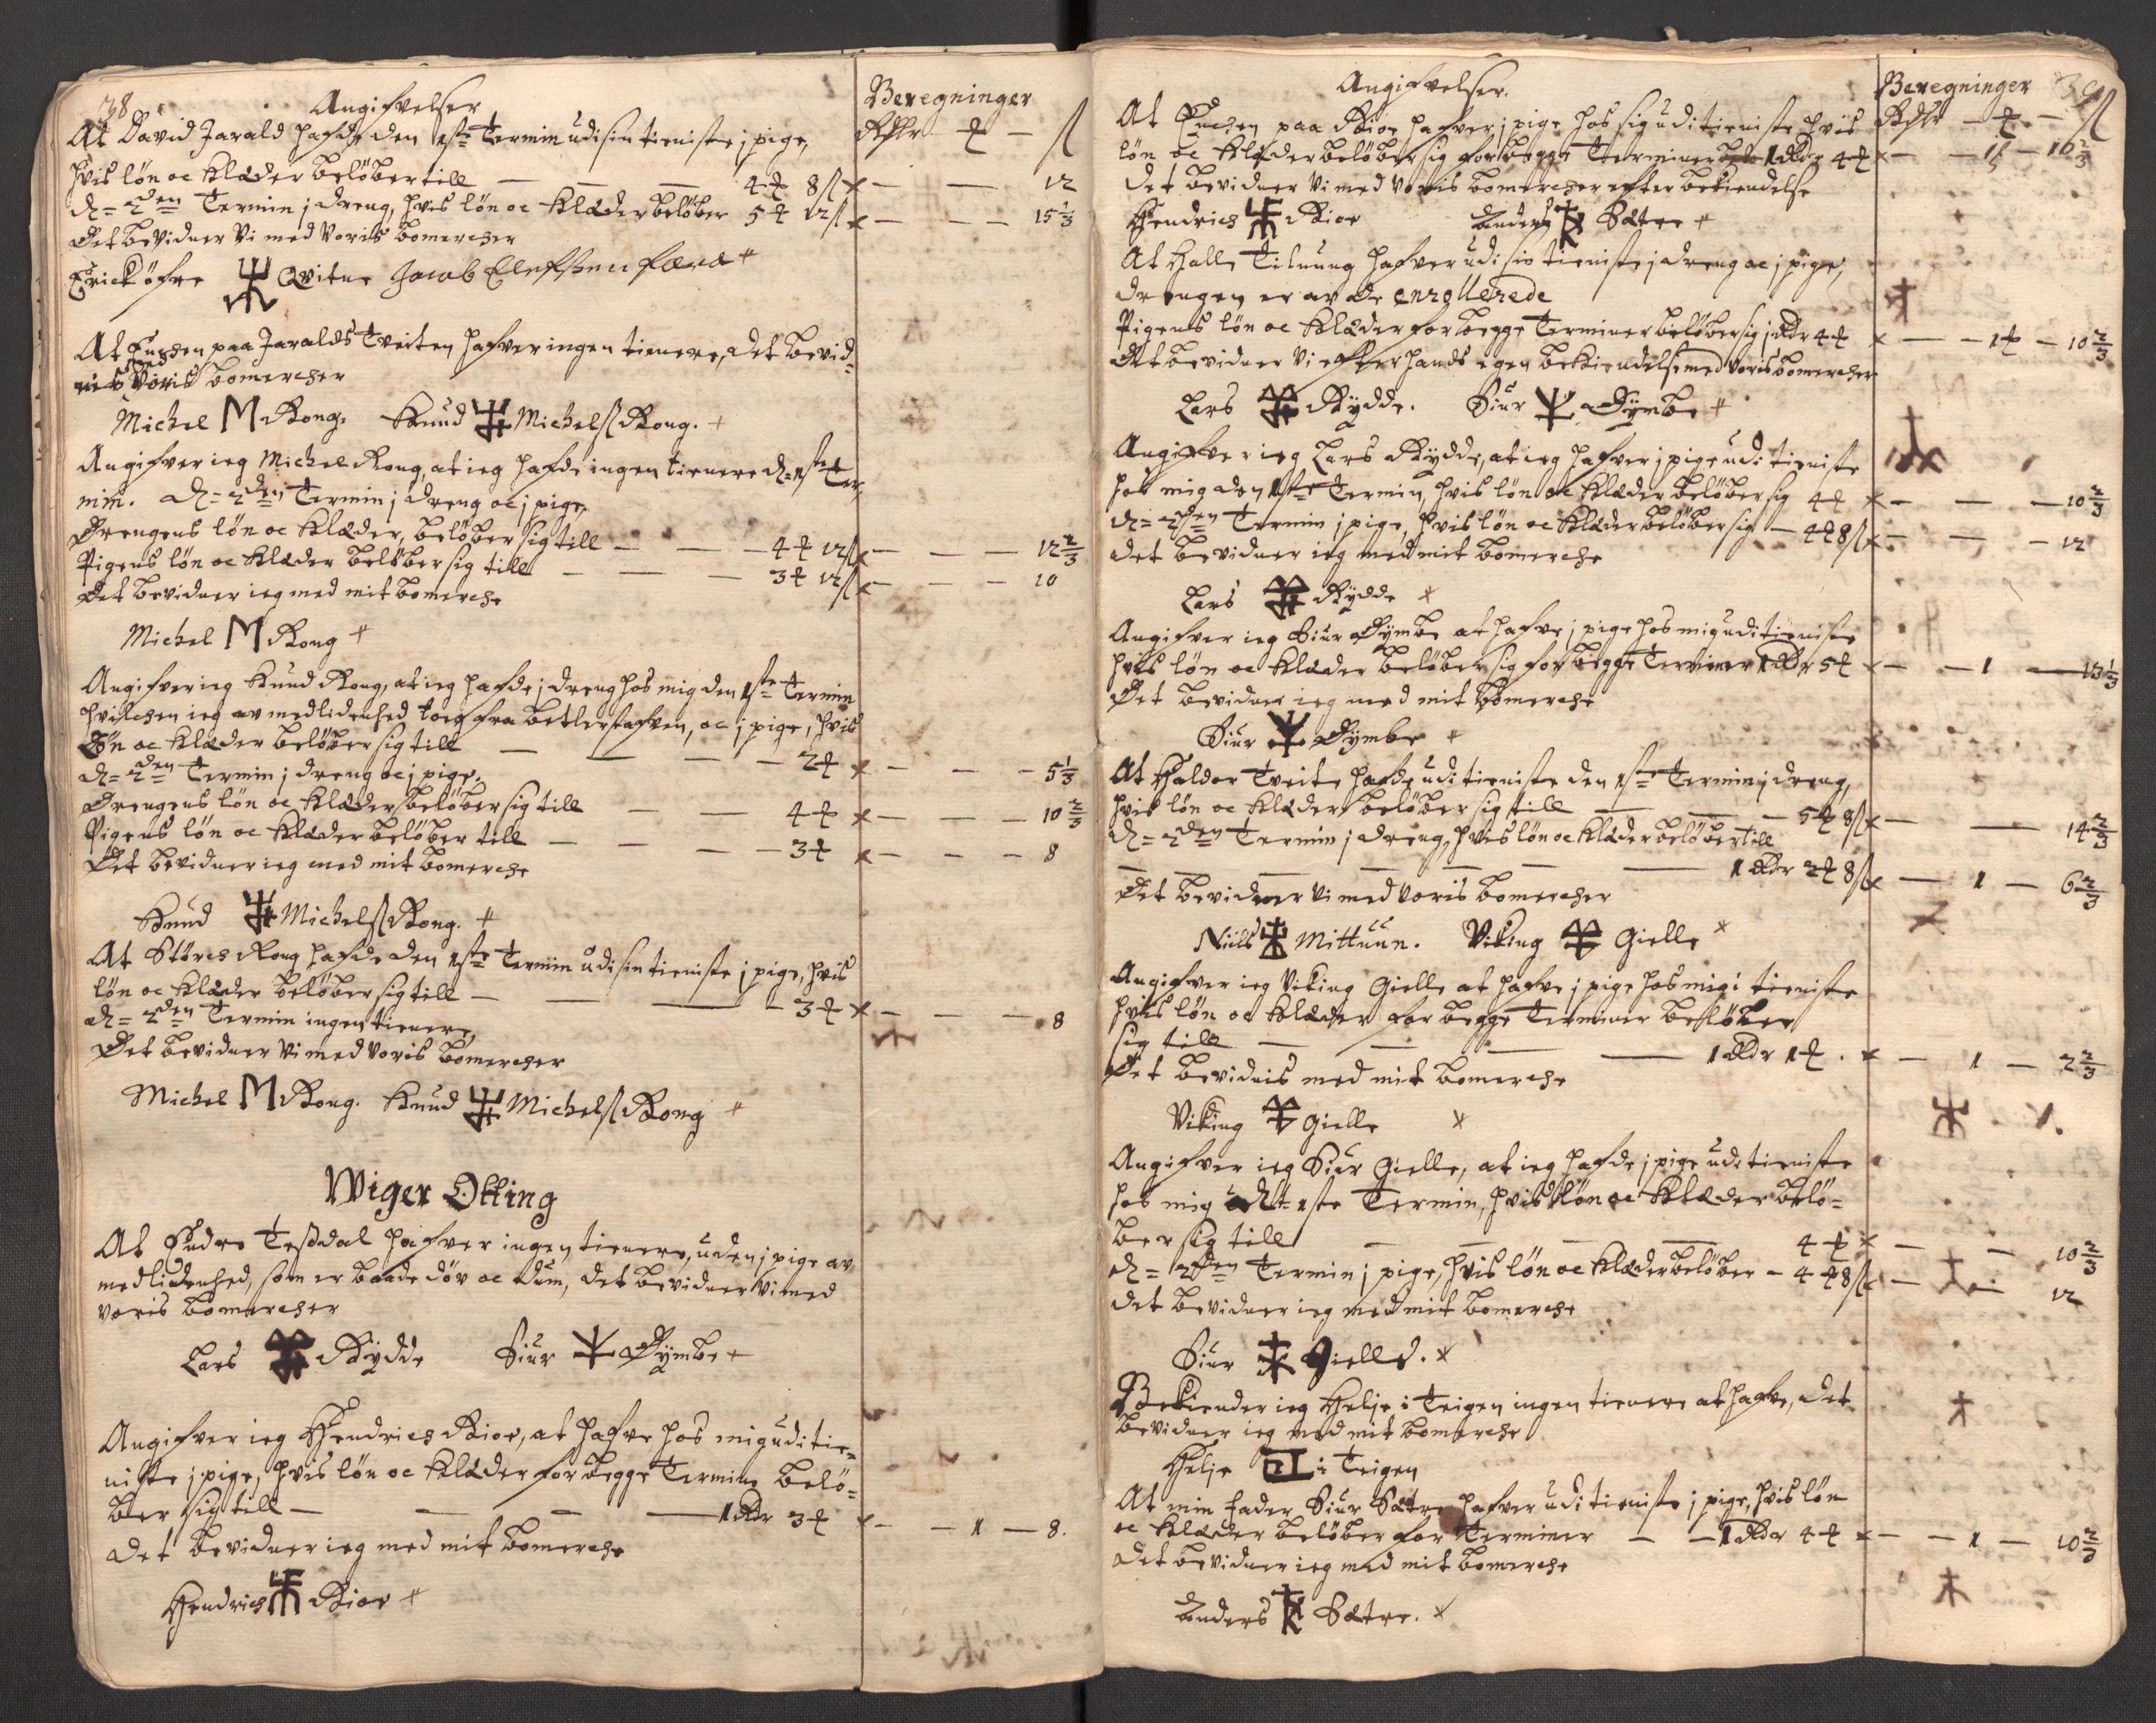 38
Angifvelser
Beregninger
At David Jarald hafde den 1ste Termin udi sin tieniste j pige,
Rdlr - ₰ - ß
hvis løn oc Klæder beløber till — — — 4 ₰ 8 ß × — — 12
d= 2den Termin j dreng, hvis løn oc Klæder beløber 5 ₰ 12 ß × — — 15 1/3
Det bevidner Vi med Voris bomercher
Erick øfre Qvitne Jacob Elefßen Færø
At Enchen paa Jaralds Tveiten hafver ingen tienere, det bevid=
med Voris bomercher
Michel M Rong. Knud Michelß Rong.
Angifver ieg Michel Rong, at ieg hafde ingen tienere d= 1ste Ter=
min. d= 2den Termin j dreng oc j pige,
Drengens løn oc Klæder, beløber sig till — — — 4 ₰ 12 ß × — — 12 2/3
Pigens løn oc Klæder beløber sig till — — 3 ₰ 12 ß × — — 10
Det bevidner ieg med mit bomerche
Michel M Rong
Angifver ieg Knud Rong, at ieg hafde j dreng hos mig den 1ste Termin
hvilchen ieg av medlidenhed tog fra betlerstafven, oc j pige, hvis
Løn oc Klæder beløber sig till — — — 2 ₰ × — — 5 1/3
d= 2den Termin j dreng oc j pige,
Drengens løn oc Klæder beløber sig till — — 4 ₰ × — — 10 2/3
Pigens løn oc Klæder beløber till — — — 3 ₰ × — — 8
Det bevidner ieg med mit bomerche
Knud Michelß Rong.
At Størch Rong hafde den 1ste Termin udi sin tieniste j pige, hvis
løn oc Klæder beløber sig till — — — 3 ₰ × — — 8
d= 2den Termin ingen tienere,
Det bevidner Vi med Voris bomercher
Michel M Rong. Knud Michelß Rong
Wiger Otting
At Endre Teßdal hafver ingen tienere, uden j pige av
medlidenhed, som er baade døv oc dum, det bevidner Vi med
voris bomercher
Lars Rydde Siur Dymbe
Angifver ieg Hendrich Rior, at hafve hos mig udi tie=
niste j pige, hvis løn oc Klæder for begge Termine belø=
ber sig till — — — 1 Rdr 3 ₰ × — 1 — 8.
Det bevidner ieg med mit bomerche
Hendrich Rior
Angifvelser.
Beregninger 39
At Enchen paa Rior hafver j pige hos sig udi tieniste hvis
Rdlr - ₰ - ß
løn oc Klæder beløber sig for begge Terminer 1 Rdr 4 ₰ × — 1 — 10 2/3
Det bevidner Vi med Voris bomercher efter bekiendelse
Hendrich Rior Anders Sætre
At Halle Tilnung hafver udi sin tieniste j dreng oc j pige,
drengen er av de enrollerede
Pigens løn oc Klæder for begge Terminer beløber sig 1 Rdr 4 ₰ × — 1 — 10 2/3
Det bevidner Vi efter hands egen bekiendelse med voris bomercher
Lars Rydde. Siur Dymbe
Angifver ieg Lars Rydde, at ieg hafver j pige udi tieniste
hos mig den 1ste Termin, hvis løn oc Klæder beløber sig 4 ₰ × — — 10 2/3
d= 2den Termin j pige, hvis løn oc Klæder beløber sig — 4 ₰ 8 ß × — — 12
Det bevidner ieg med mit bomerche
Lars Rydde
Angifver ieg Siur Dymbe at hafve j pige hos mig udi tieniste
hvis løn oc Klæder beløber sig for begge Terminer 1 Rdr 5 ₰ × — 1 — 13 1/3
Det bevidner ieg med mit bomerche
Siur Dymbe
At Haldor Tveite hafde udi tieniste den 1ste Termin j dreng,
hvis løn oc Klæder beløber sig till — — 5 ₰ 8 ß × — — 14 2/3
d= 2den Termin j dreng, hvis løn oc Klæder beløber till
— — — — 1 Rdr 2 ₰ 8 ß × — 1 — 6 2/3
Det bevidner Vi med Voris bomercher
Niels Mittuun. Viking Gielle
Angifver ieg Viking Gielle at hafve j pige hos mig i tieniste
hvis løn oc Klæder for begge Terminer beløber
sig till — — — 1 Rdr 1 ₰. × — 1 — 2 2/3
Det bevidnis med mit bomerche
Viking Gielle
Angifver ieg Siur Gielle, at ieg hafde j pige udi tieniste
hos mig d= 1ste Termin, hvis løn oc Klæder belø=
ber sig till — — — 4 ₰ × — — 10 2/3
d= 2den Termin j pige, hvis løn oc Klæder beløber — 4 ₰ 8 ß × — — 12
Det bevidner ieg med mit bomerche
Siur Gielle.
Bekiender ieg Helje i Teigen ingen tienere at hafve, det
bevidner ieg med mit bomerche
Helje i Teigen
At min Fader Siur Sætre hafver udi tieniste j pige, hvis løn
oc Klæder beløber for Terminer — — 1 Rdr 4 ₰ × — 1 — 10 2/3
Det bevidner ieg med mit bomerche
Anders Sætre.